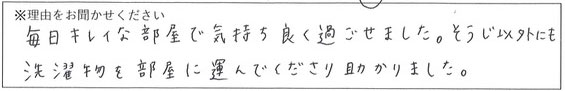 ※理由をお聞かせください
毎日キレイな部屋で気持ち良く過ごせました。そうじ以外にも
洗濯物を部屋に運んでくださり助かりました。